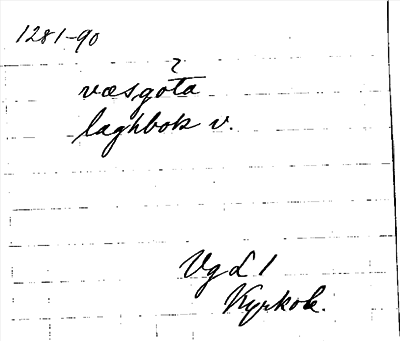 1281-90
?
væsgøta
laghbok v.
VgL 1
Kyrkob.